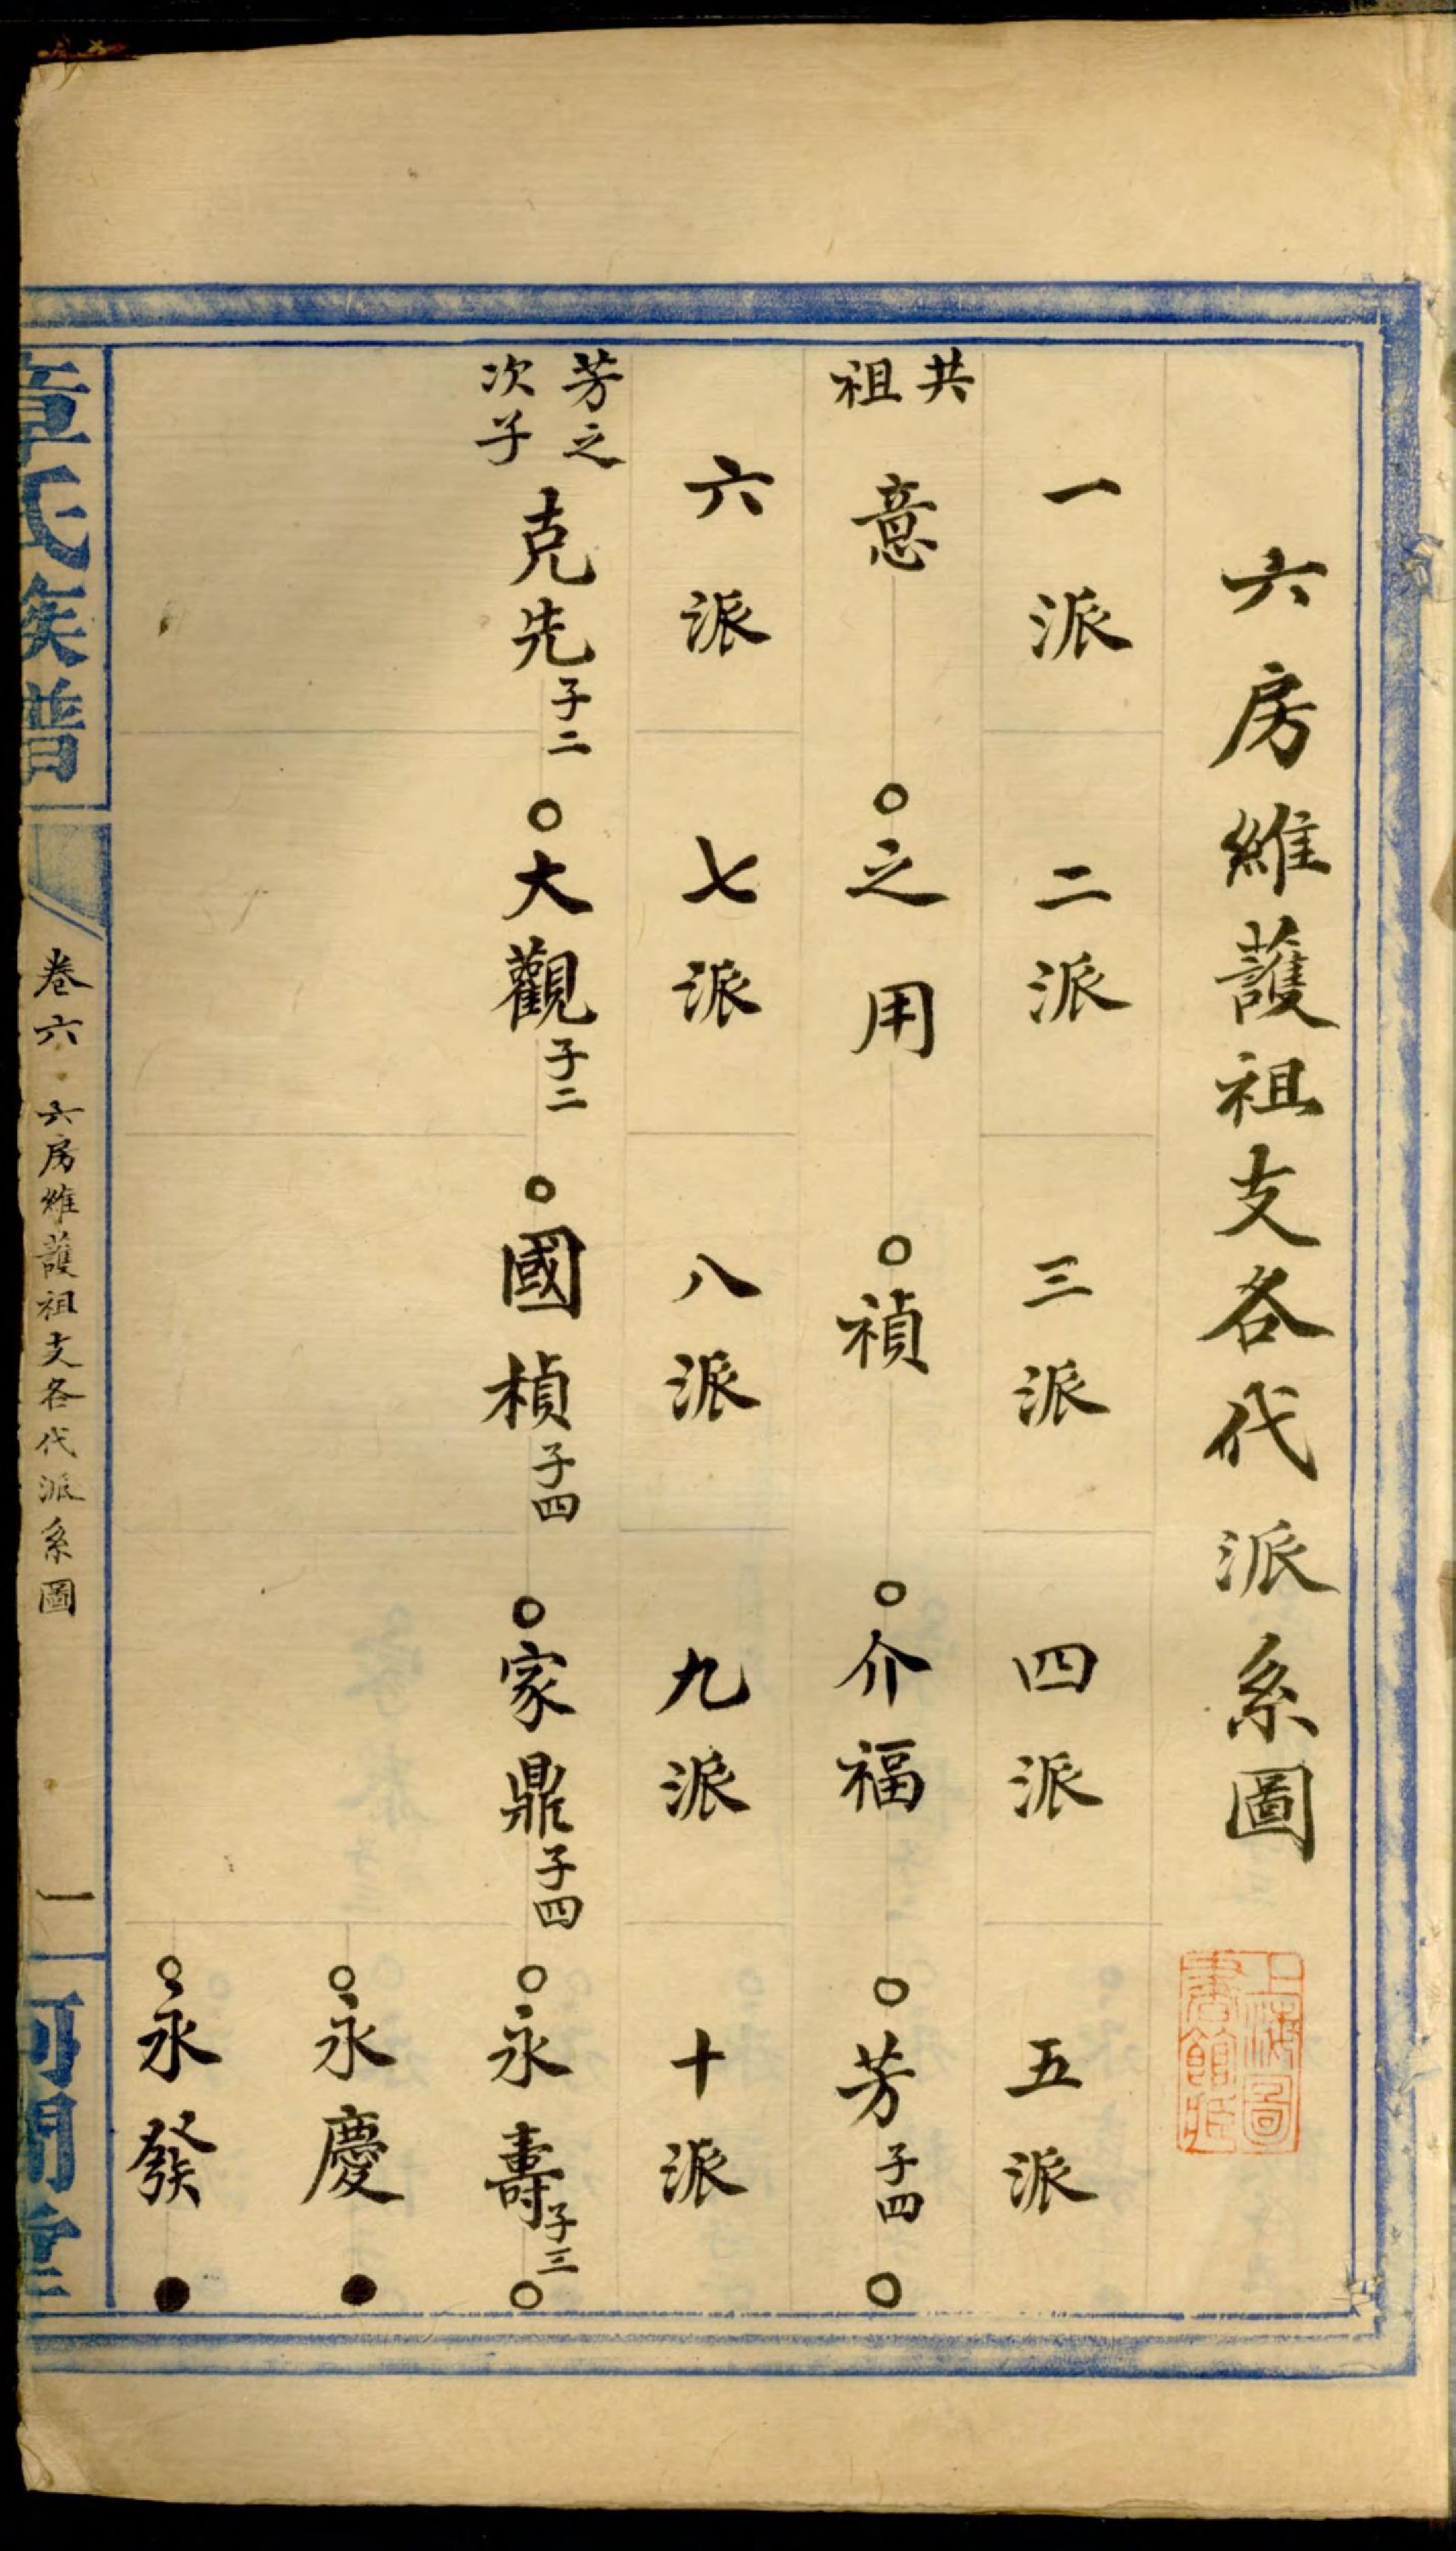 六房維護祖支各代派系圖
上海圖
書館藏
一派 二派 三派 四派 五派
共
祖
意 之用 禎 介福 芳 子四
六派 七派 八派 九派 十派
芳之
次子
克先 子二 大觀 子二 國楨 子四 家鼎 子四 永壽 子三
永慶
永發
章氏族譜 卷六 六房維護祖支各代派系圖 一 河間堂